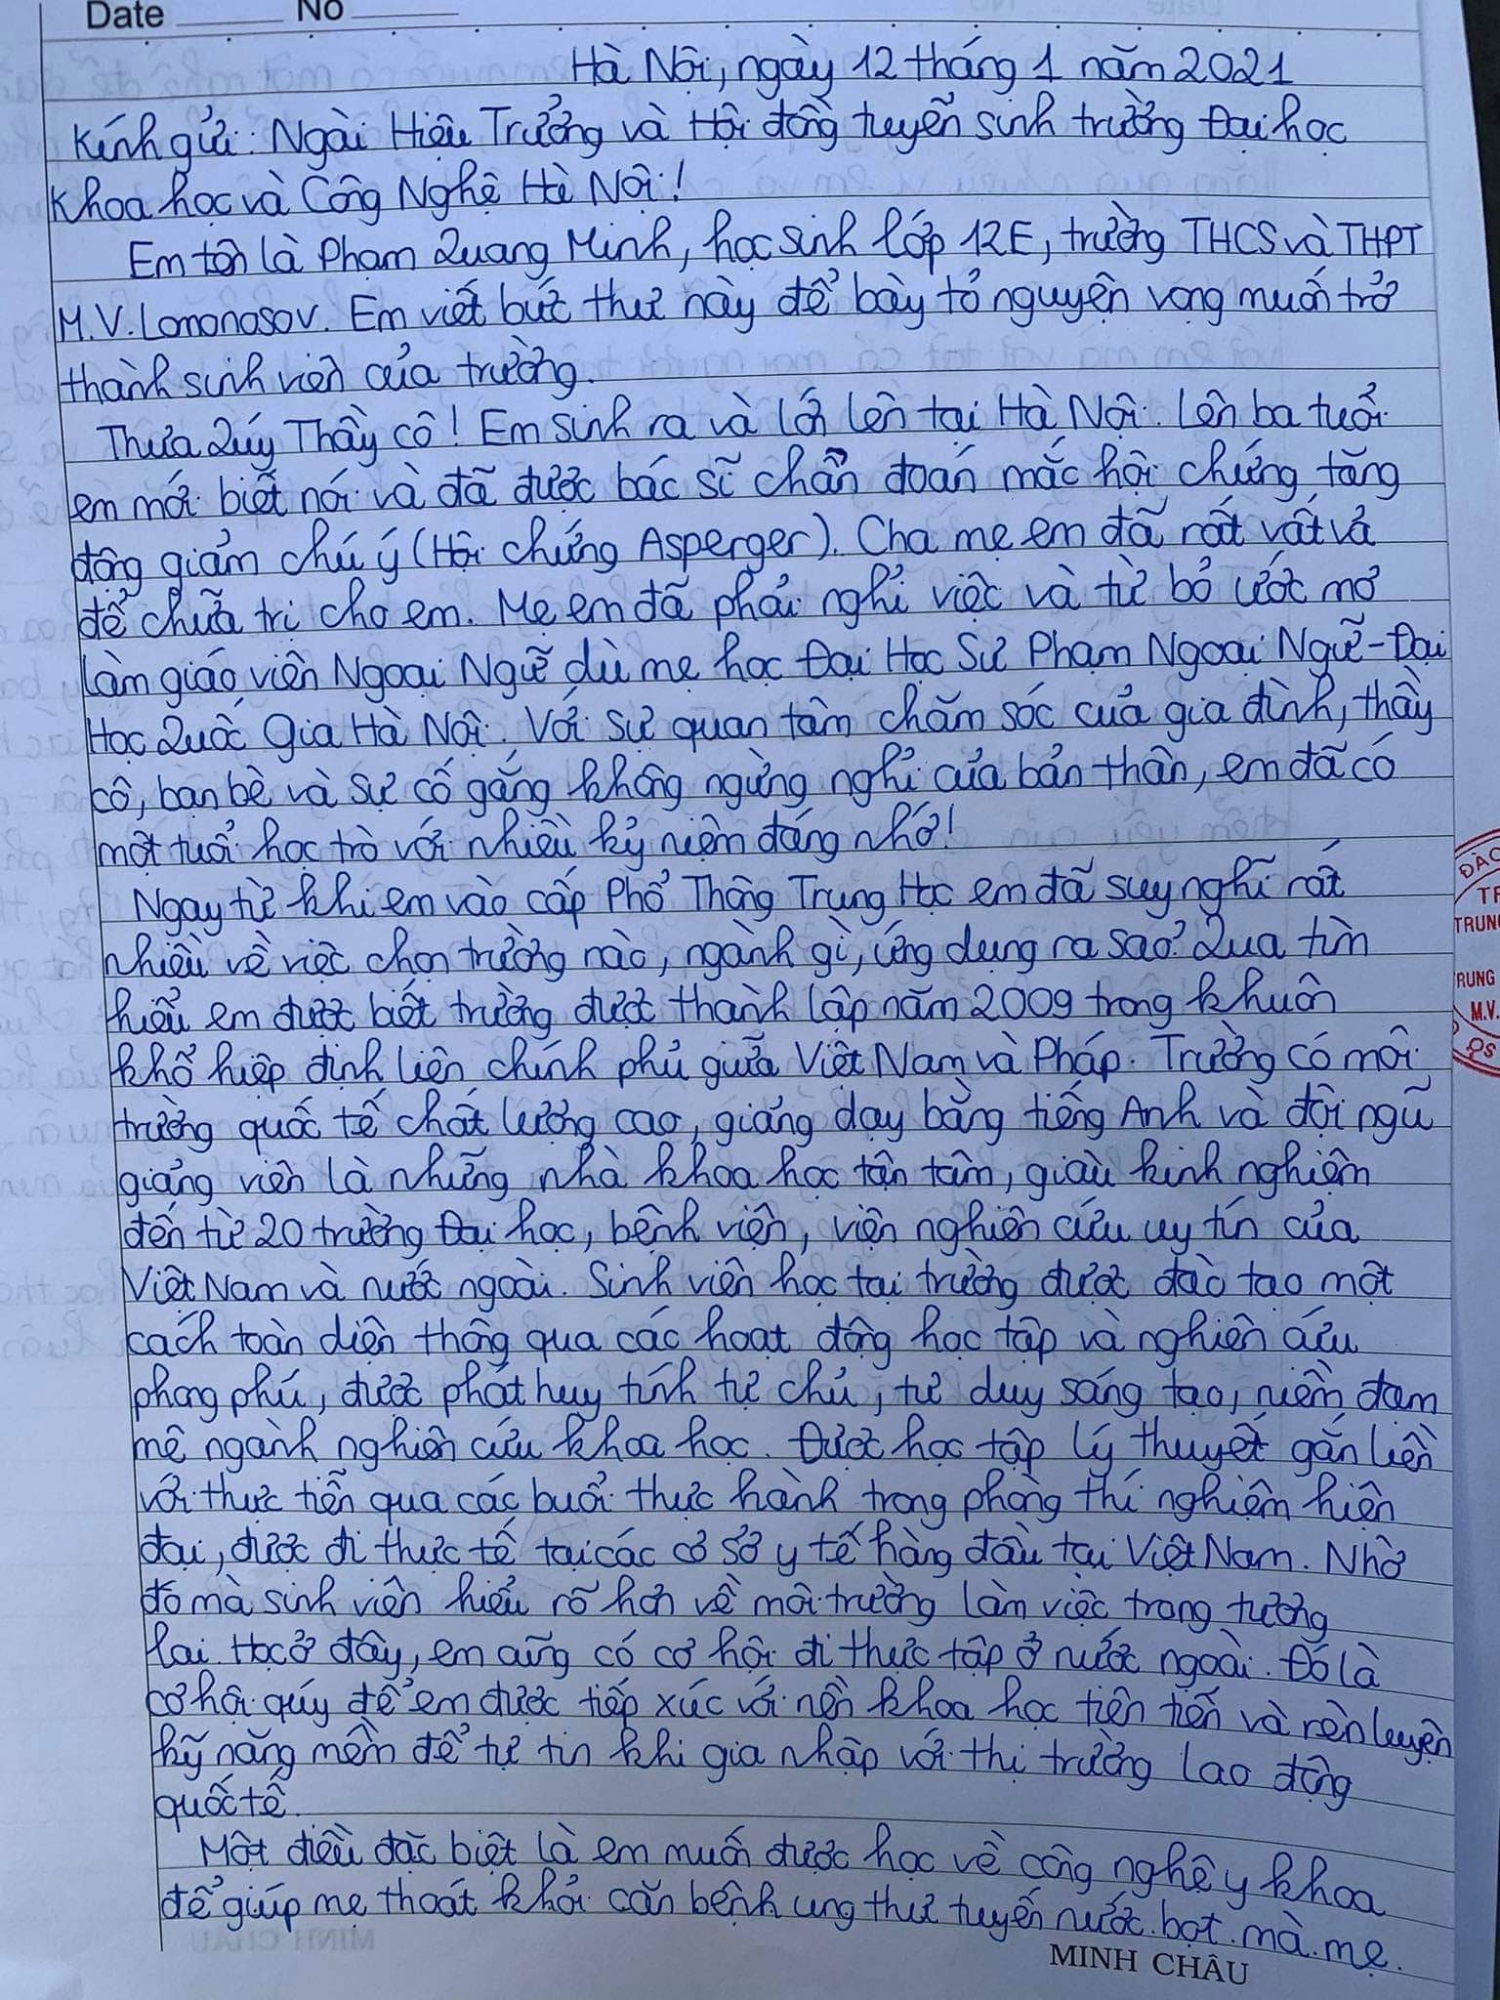 Date No
Hà Nội, ngày 12 tháng 1 năm 2021
Kính gửi: Ngài Hiệu Trưởng và Hội đồng tuyển sinh trường Đại học
Khoa học và Công Nghệ Hà Nội!
Em tên là Phạm Quang Minh, học sinh lớp 12E, trường THCS và THPT
M.V.Lomonosov. Em viết bức thư này để bày tỏ nguyện vọng muốn trở
thành sinh viên của trường.
Thưa Quý Thầy cô! Em sinh ra và lớn lên tại Hà Nội. Lên ba tuổi
em mới biết nói và đã được bác sĩ chẩn đoán mắc hội chứng tăng
động giảm chú ý (Hội chứng Asperger). Cha mẹ em đã rất vất vả
để chữa trị cho em. Mẹ em đã phải nghỉ việc và từ bỏ ước mơ
làm giáo viên Ngoại Ngữ dù mẹ học Đại Học Sư Phạm Ngoại Ngữ-Đại
Học Quốc Gia Hà Nội. Với sự quan tâm chăm sóc của gia đình, thầy
cô, bạn bè và sự cố gắng không ngừng nghỉ của bản thân, em đã có
một tuổi học trò với nhiều kỷ niệm đáng nhớ!
Ngay từ khi em vào cấp Phổ Thông Trung Học em đã suy nghĩ rất
nhiều về việc chọn trường nào, ngành gì, ứng dụng ra sao? Qua tìm
hiểu em được biết trường được thành lập năm 2009 trong khuôn
khổ hiệp định liên chính phủ giữa Việt Nam và Pháp. Trường có môi
trường quốc tế chất lượng cao, giảng dạy bằng tiếng Anh và đội ngũ
giảng viên là những nhà khoa học tận tâm, giàu kinh nghiệm
đến từ 20 trường Đại học, bệnh viện, viện nghiên cứu uy tín của
Việt Nam và nước ngoài. Sinh viên học tại trường được đào tạo một
cách toàn diện thông qua các hoạt động học tập và nghiên cứu
phong phú, được phát huy tính tự chủ, tư duy sáng tạo, niềm đam
mê ngành nghiên cứu khoa học. Được học tập lý thuyết gắn liền
với thực tiễn qua các buổi thực hành trong phòng thí nghiệm hiện
đại, được đi thực tế tại các cơ sở y tế hàng đầu tại Việt Nam. Nhờ
đó mà sinh viên hiểu rõ hơn về môi trường làm việc trong tương
lai. Học ở đây, em cũng có cơ hội đi thực tập ở nước ngoài. Đó là
cơ hội quý để em được tiếp xúc với nền khoa học tiên tiến và rèn luyện
kỹ năng mềm để tự tin khi gia nhập với thị trường lao động
quốc tế.
Một điều đặc biệt là em muốn được học về công nghệ y khoa
để giúp mẹ thoát khỏi căn bệnh ung thư tuyến nước bọt mà mẹ
MINH CHÂU
ĐÀO
TR
TRUN
RUNG
M.V.